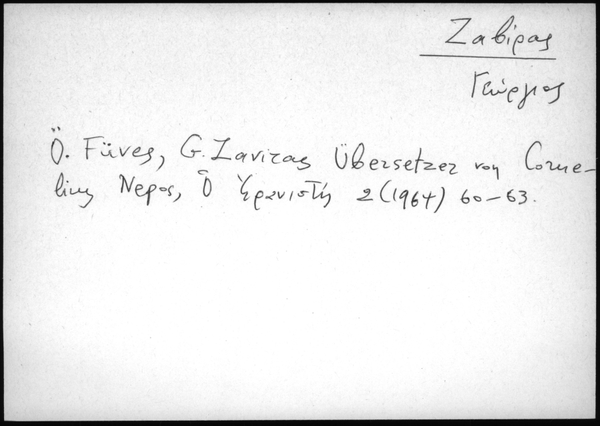 Ζαβίρας
Γεώργιος
Ö. Füves, G. Zaviras Übersetzer von Corne-
lius Nepos, Ὁ Ἐρανιστής 2 (1964) 60–63.